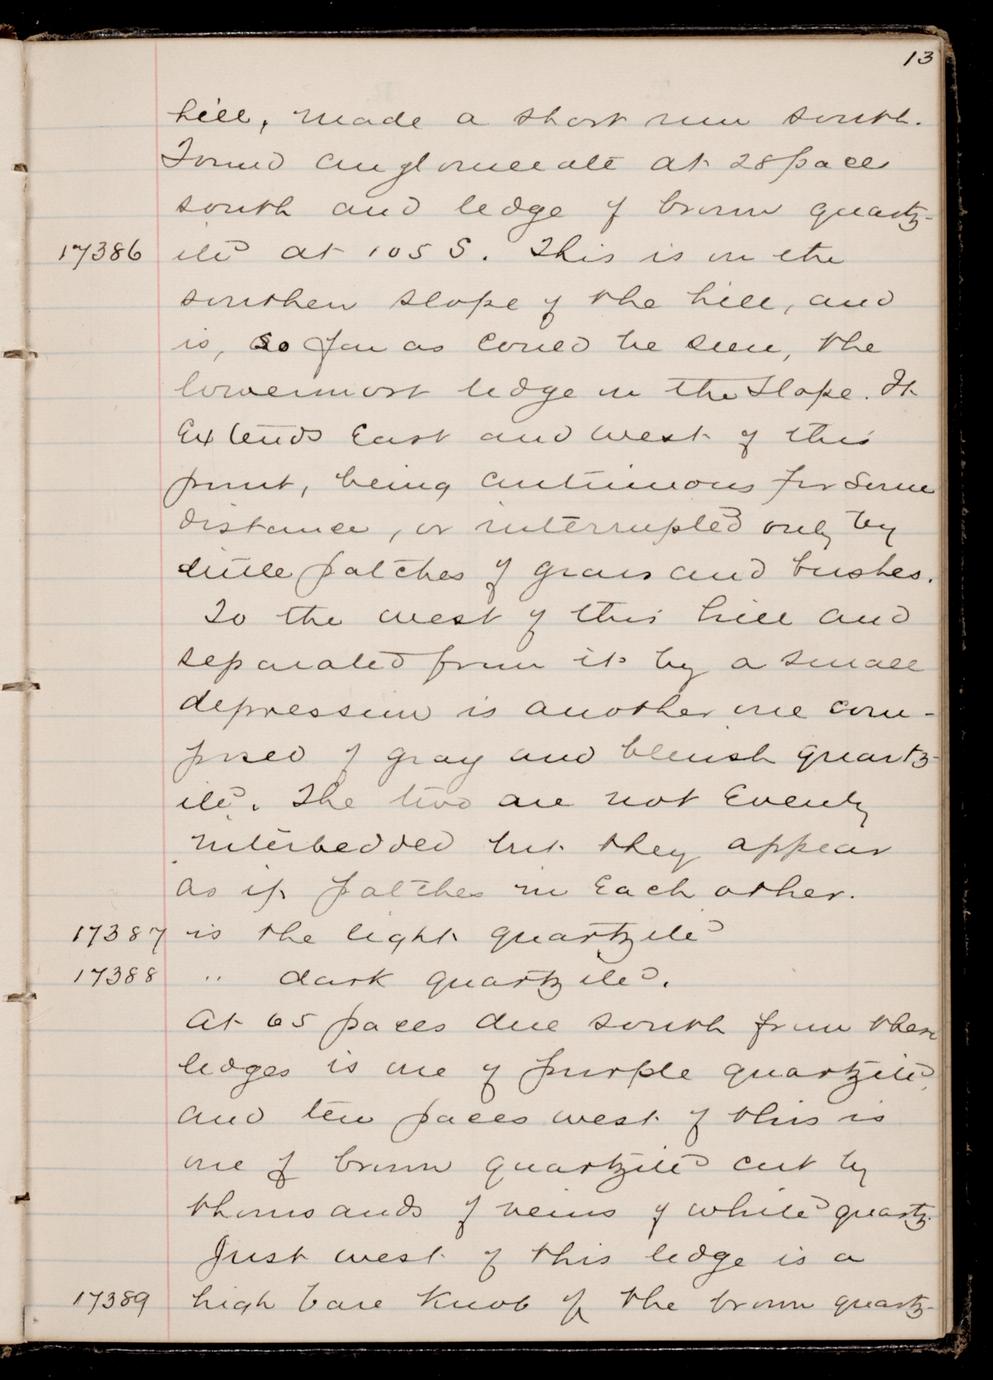 13
hill, made a short run south.
Found conglomerate at 28 paces
south and ledge of brown quartz-
17386 ite at 105 S. This is on the
southern slope of the hill, and
is, so far as could be seen, the
lowermost ledge on the slope. It
extends East and west of this
point, being continuous for some
distance, or interrupted only by
little patches of grass and bushes.
To the west of this hill and
separated from it by a small
depression is another one com-
posed of gray and bluish quartz-
ite. The two are not evenly
interbedded but they appear
as if patches in each other.
17387 is the light quartzite
17388 " dark quartzite.
At 65 paces due south from these
ledges is one of purple quartzite,
and ten paces west of this is
one of brown quartzite cut by
thousands of veins of white quartz.
Just west of this ledge is a
17389 high bare knob of the brown quartz-